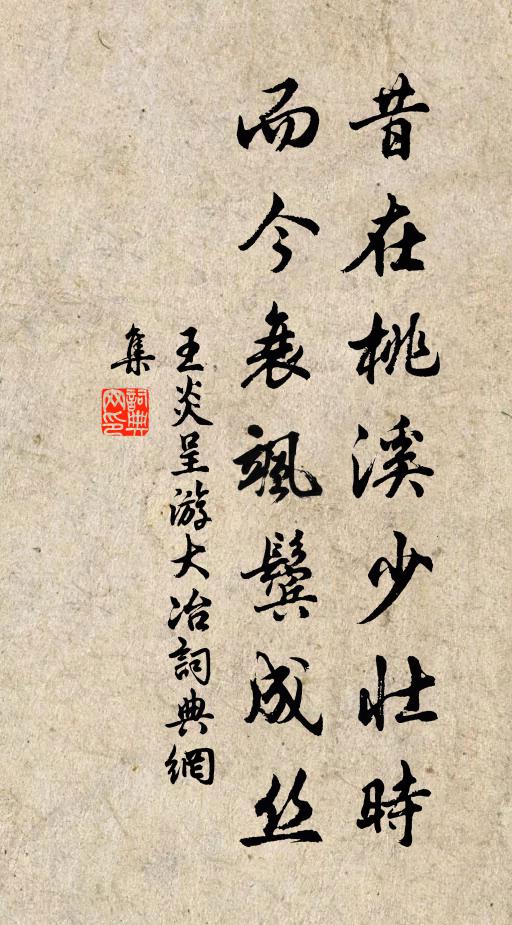 昔在桃溪少壯時
而今衰颯鬢成丝
王炎呈游大冶詞典網
集
詞典網印